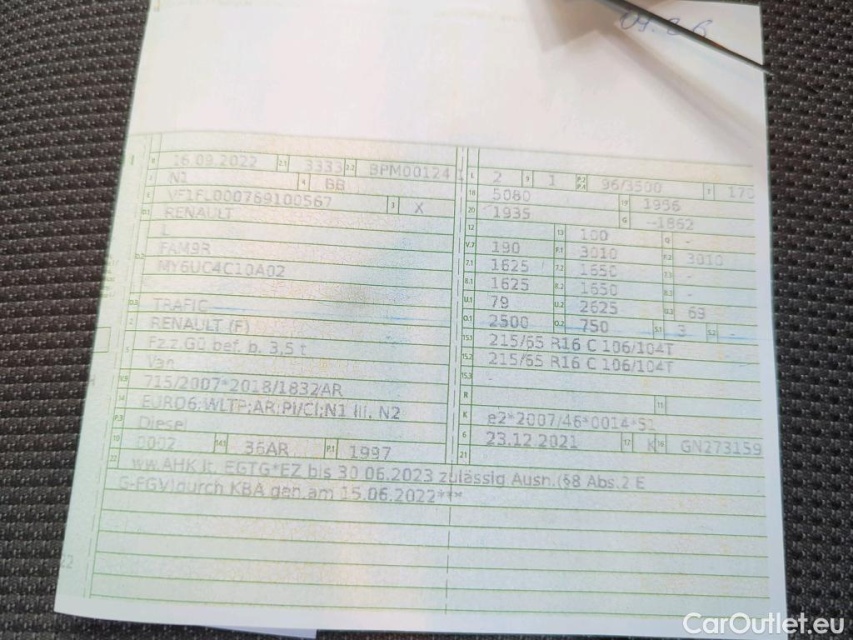 16.09.2022 2.1 3333 2.2 BPM00124
N1 4 BB
VF1FL000769100567 3 X
RENAULT
L
FAM9R
MY6UC4C10A02
TRAFIC
RENAULT (F)
Fz.z.Gü bef. b. 3,5 t
Van
715/2007*2018/1832AR
EURO6;WLTP;AR;PI/CI;N1 III, N2
Diesel
0002 36AR P.1 1997
ww.AHK lt. EGTG*EZ bis 30.06.2023 zulässig Ausn.(§8 Abs.2 E
G-FGV)durch KBA gen.am 15.06.2022***
L 2 9 1 96/3500 T 170
18 5080 19 1956
20 1935 G -1862
12 - 13 100 Q -
V.7 190 F.1 3010 F.2 3010
7.1 1625 7.2 1650 7.3 -
8.1 1625 8.2 1650 8.3 -
U.1 79 U.2 2625 U.3 69
O.1 2500 O.2 750 S.1 3 S.2 -
15.1 215/65 R16 C 106/104T
15.2 215/65 R16 C 106/104T
15.3
R 11
K e2*2007/46*0014*51
6 23.12.2021 17 K 16 GN273159
21
22
CarOutlet.eu